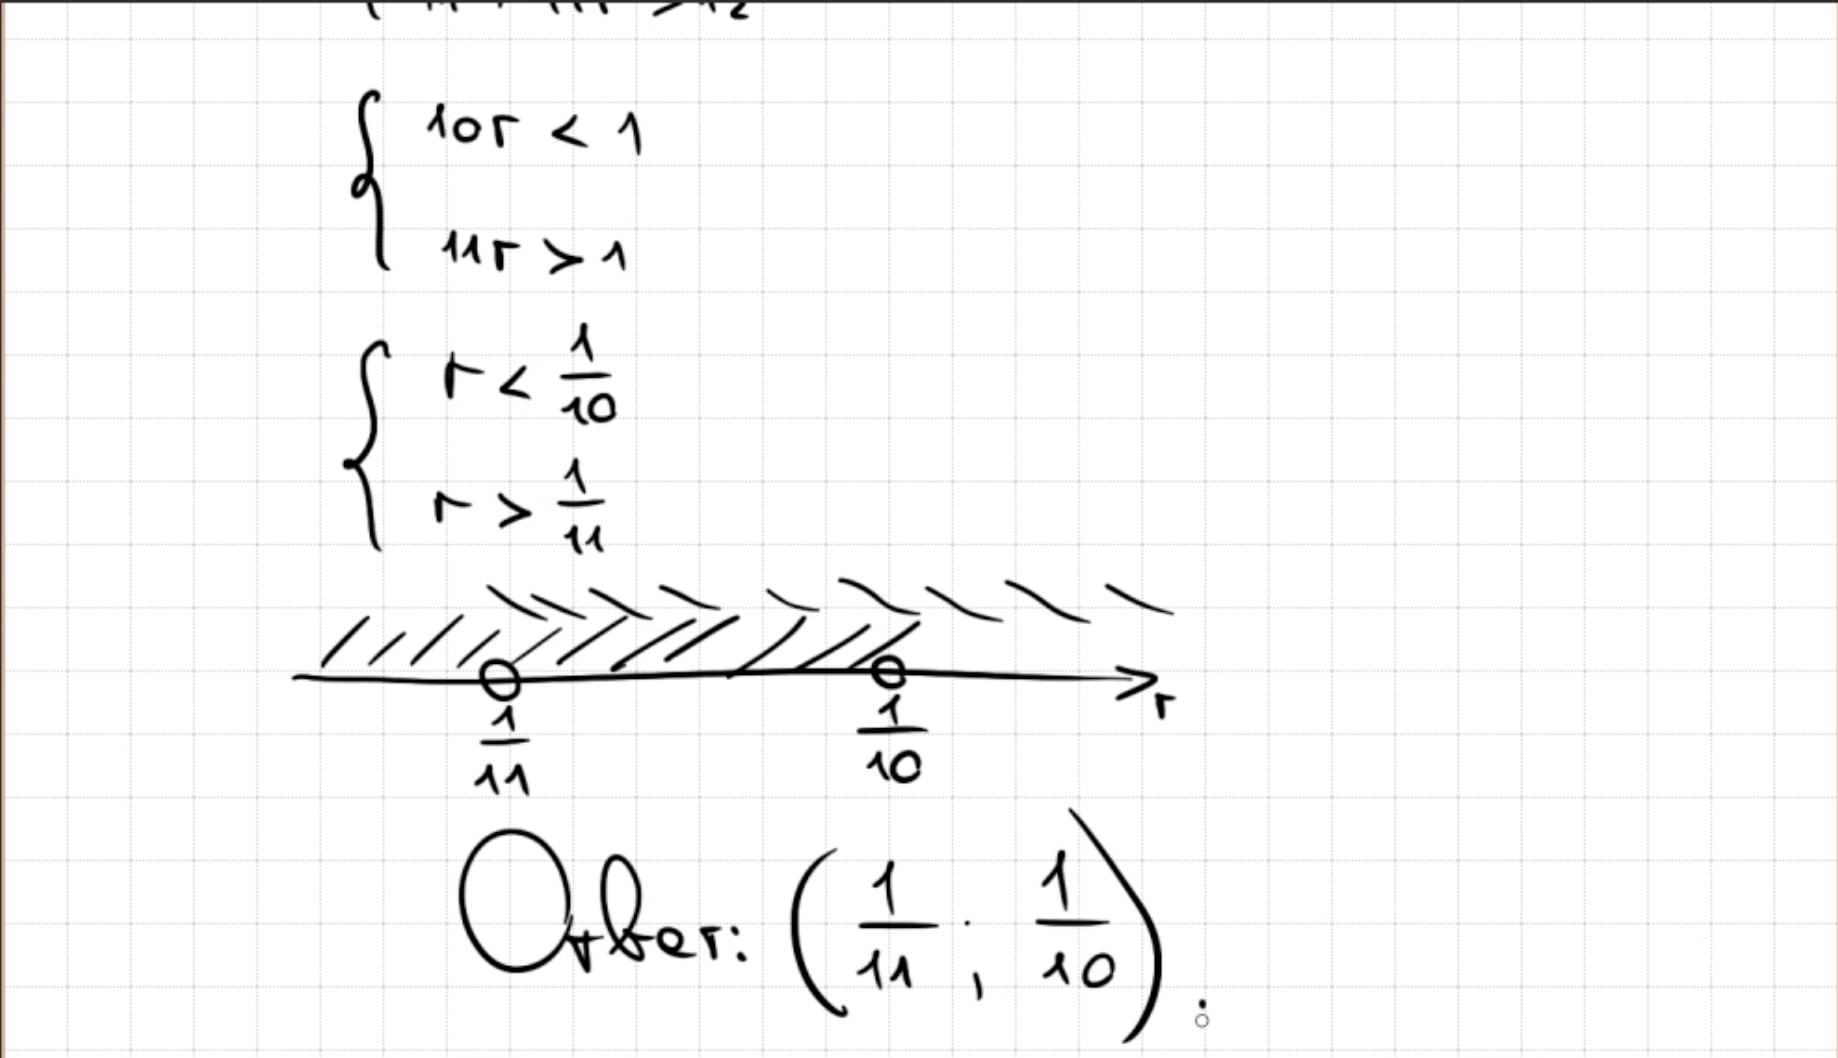 { 10r < 1
11r > 1
{ r < 1/10
r > 1/11
1/11 1/10 r
Ответ: (1/11 ; 1/10).